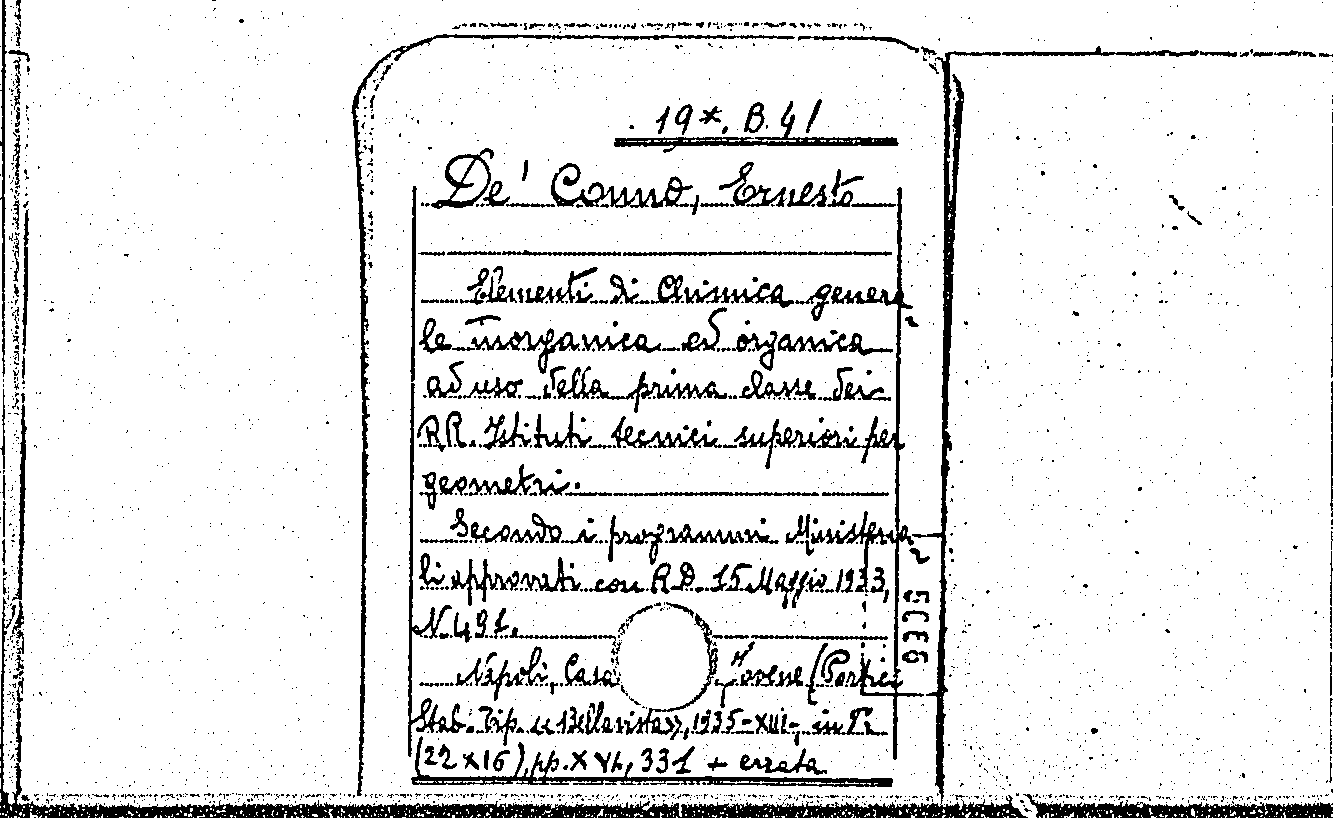 19*. B. 41
De' Conno, Ernesto
Elementi di Chimica genera-
le inorganica ed organica
ad uso della prima classe dei
RR. Istituti tecnici superiori per
geometri.
Secondo i programmi Ministeria-
li approvati con R.D. 15 Maggio 1933,
N. 491.
Napoli, Casa Jovene (Portici
Stab. Tip. « Bellavista », 1935-XIII-, in
(22 x 16), pp. 331 + errata